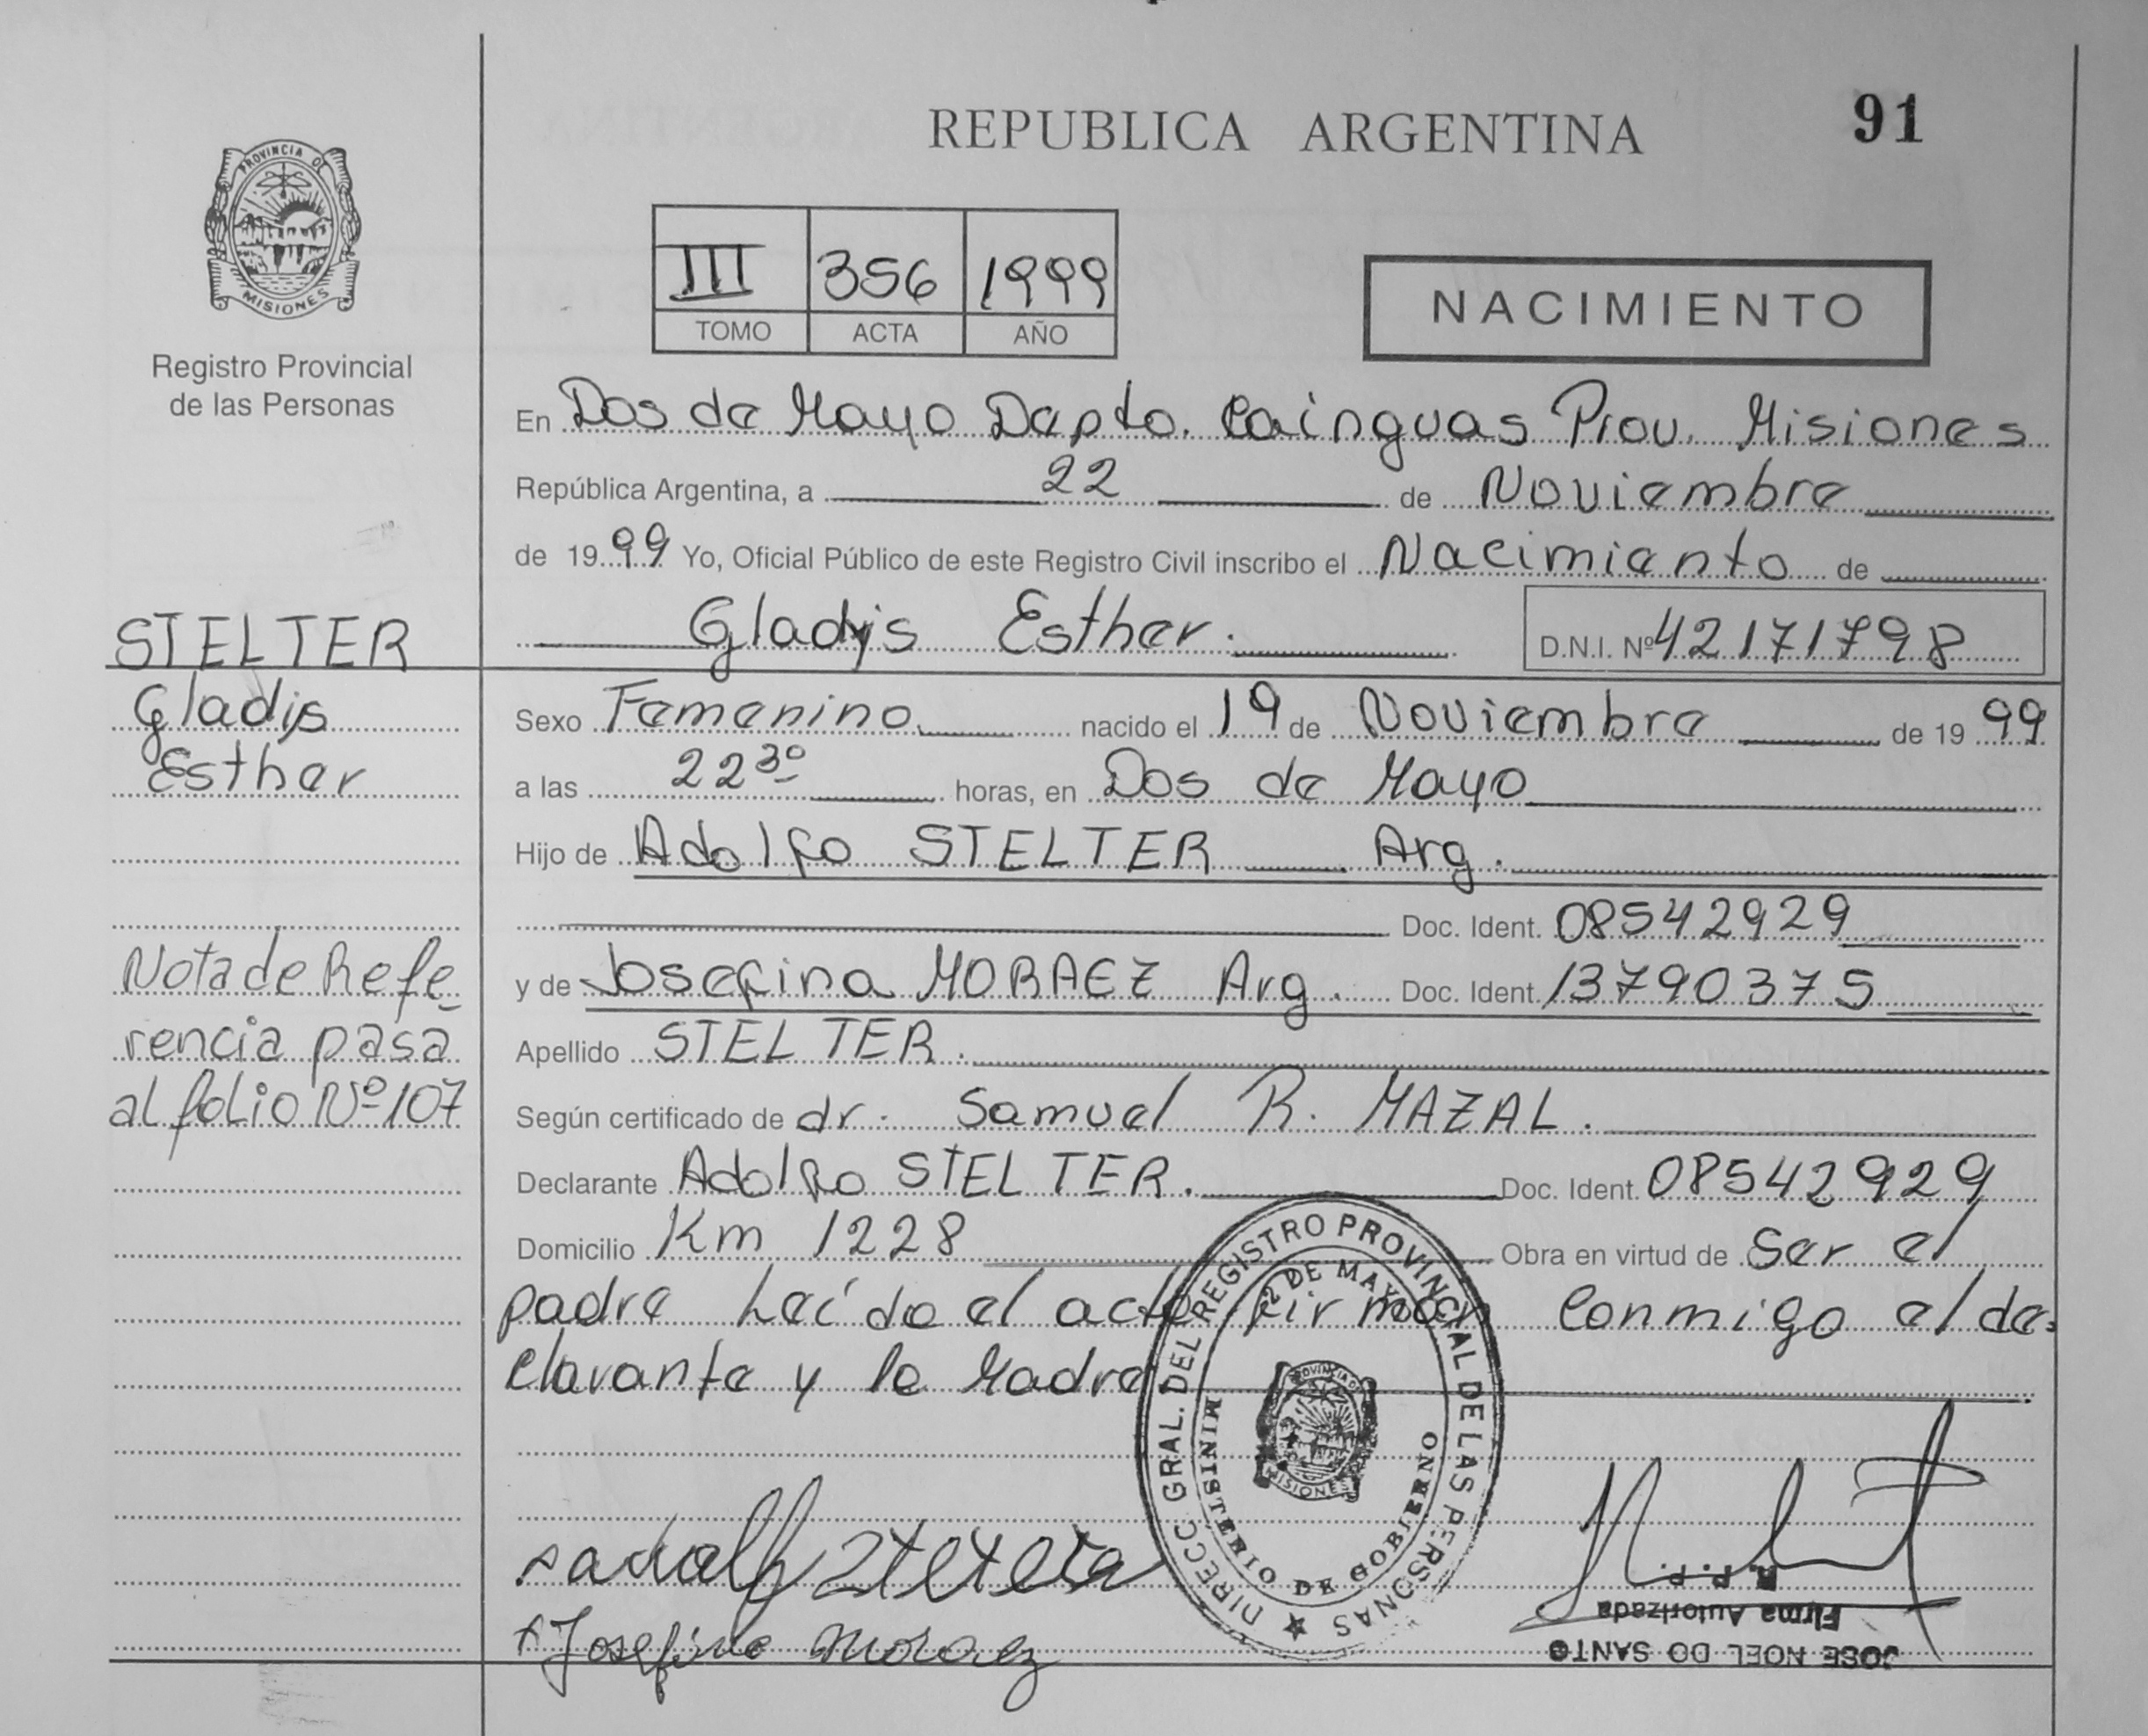 REPUBLICA ARGENTINA
91
PROVINCIA DE
MISIONES
Registro Provincial
de las Personas
III 356 1999
TOMO ACTA AÑO
NACIMIENTO
En Dos de Mayo Depto. Cainguas Prov. Misiones
República Argentina, a 22 de Noviembre
de 19 99 Yo, Oficial Público de este Registro Civil inscribo el Nacimiento de
Gladys Esther. D.N.I. Nº 42171798
STELTER
Gladis
Esther
Sexo Femenino nacido el 19 de Noviembre de 19 99
a las 22 30 horas, en Dos de Mayo
Hijo de Adolfo STELTER Arg.
Doc. Ident. 08542929
y de Josefina MORAEZ Arg. Doc. Ident. 13790375
Nota de Refe
rencia pasa
al folio Nº 107
Apellido STELTER.
Según certificado de dr. Samuel R. MAZAL.
Declarante Adolfo STELTER. Doc. Ident. 08542929
Domicilio Km 1228 Obra en virtud de Ser el
padre Leído el acto firman Conmigo el de-
clarante y la Madre
DIRECC GRAL. DEL REGISTRO PROVINCIAL DE LAS PERSONAS
2 DE MAYO
MINISTERIO DE GOBIERNO
PROVINCIA DE
MISIONES
Josefina Moraez
R. P. P.
Firma Autorizada
JOSE NOEL DO SANTO